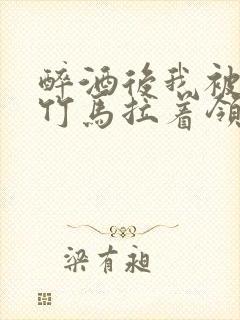 醉酒後我被
竹馬拉着領
梁有昶